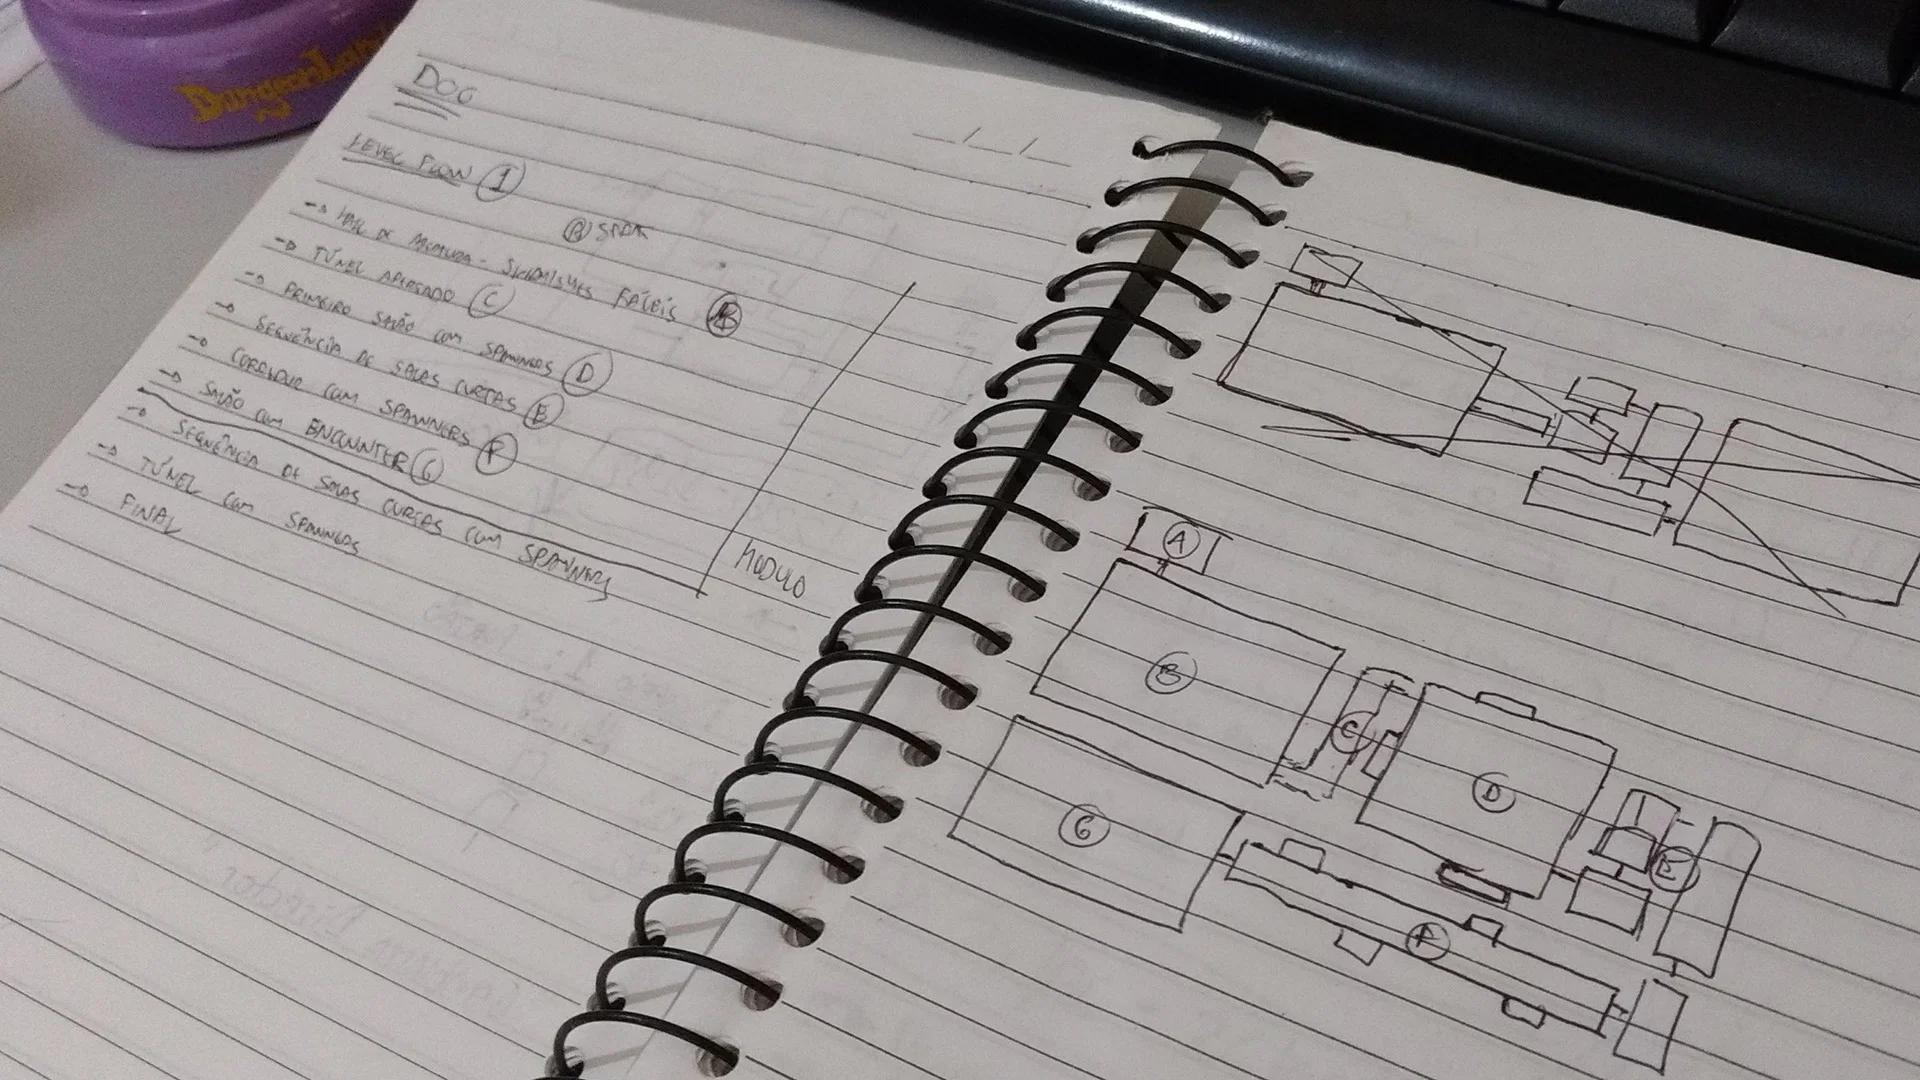 DungeonLa
DOG
LEVEL FLOW 1
A START
→ HALL DE ABERTURA - SKIRMISHES FÁCEIS B
→ TÚNEL APERTADO C
→ PRIMEIRO SALÃO COM SPAWNERS D
→ SEQUÊNCIA DE SALAS CURTAS E
→ CORREDOR COM SPAWNERS F
→ SALÃO COM ENCOUNTER G
→ SEQUÊNCIA DE SALAS CURTAS COM SPAWNERS
→ TÚNEL COM SPAWNERS
→ FINAL
MODULO
A
B
C
D
E
F
G